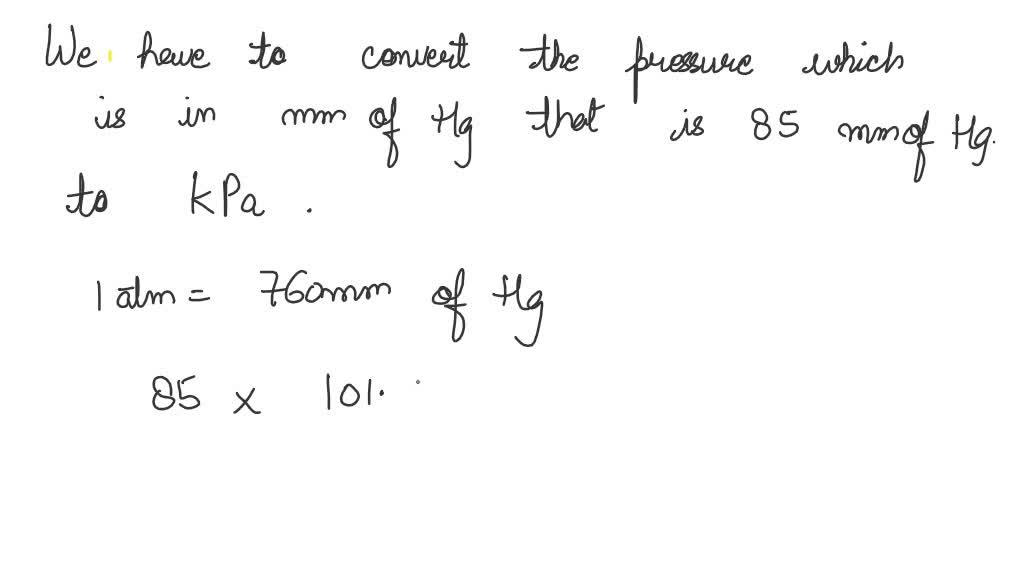 We have to convert the pressure which
is in mm of Hg that is 85 mm of Hg.
to kPa .
1 atm = 760mm of Hg
85 x 101.